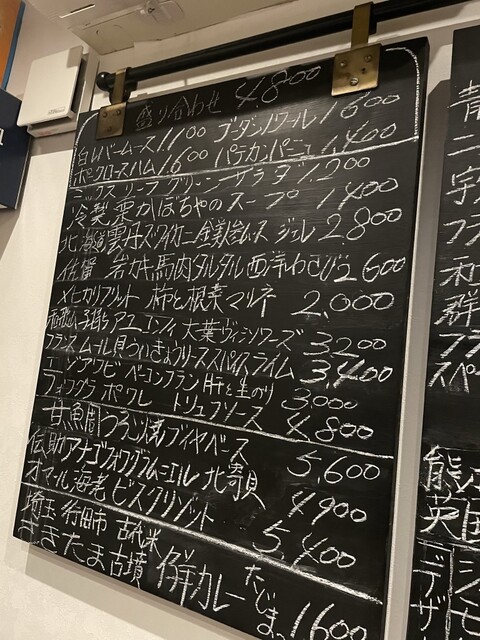 盛り合わせ 4.800
白レバームース1100 ブーダンノワール1600
ポークロースハム1600 パテカンパーニュ1400
ミックスリーフグリーンサラダ1200
冷製栗かぼちゃのスープ1400
北海道雲丹ズワイガニ金美人参ムースジュレ2.800
佐賀 岩ガキ馬肉タルタル西洋わさび2600
メヒカリフリット 柿と根菜マリネ 2,000
稚鮎 アユ コンフィ 大葉ヴィシソワーズ 3200
フランスムール貝 スパイスライム 3,400
エゾアワビ ベーコンフラン 肝と生のり 3,000
フォワグラ ポワレ トリュフソース 4,800
甘鯛うろこ焼ブイヤベース 5,600
伝助アナゴフォワグラムニエル 北寄貝 4900
オマール海老 ビスクリゾット 5,400
埼玉 行田市 古代米
さきたま古墳 併カレー たじまっ 1600
青
ニ
宇
フラ
和
群
フラ
スペ
熊
英国
デ
ザ
シ
モ